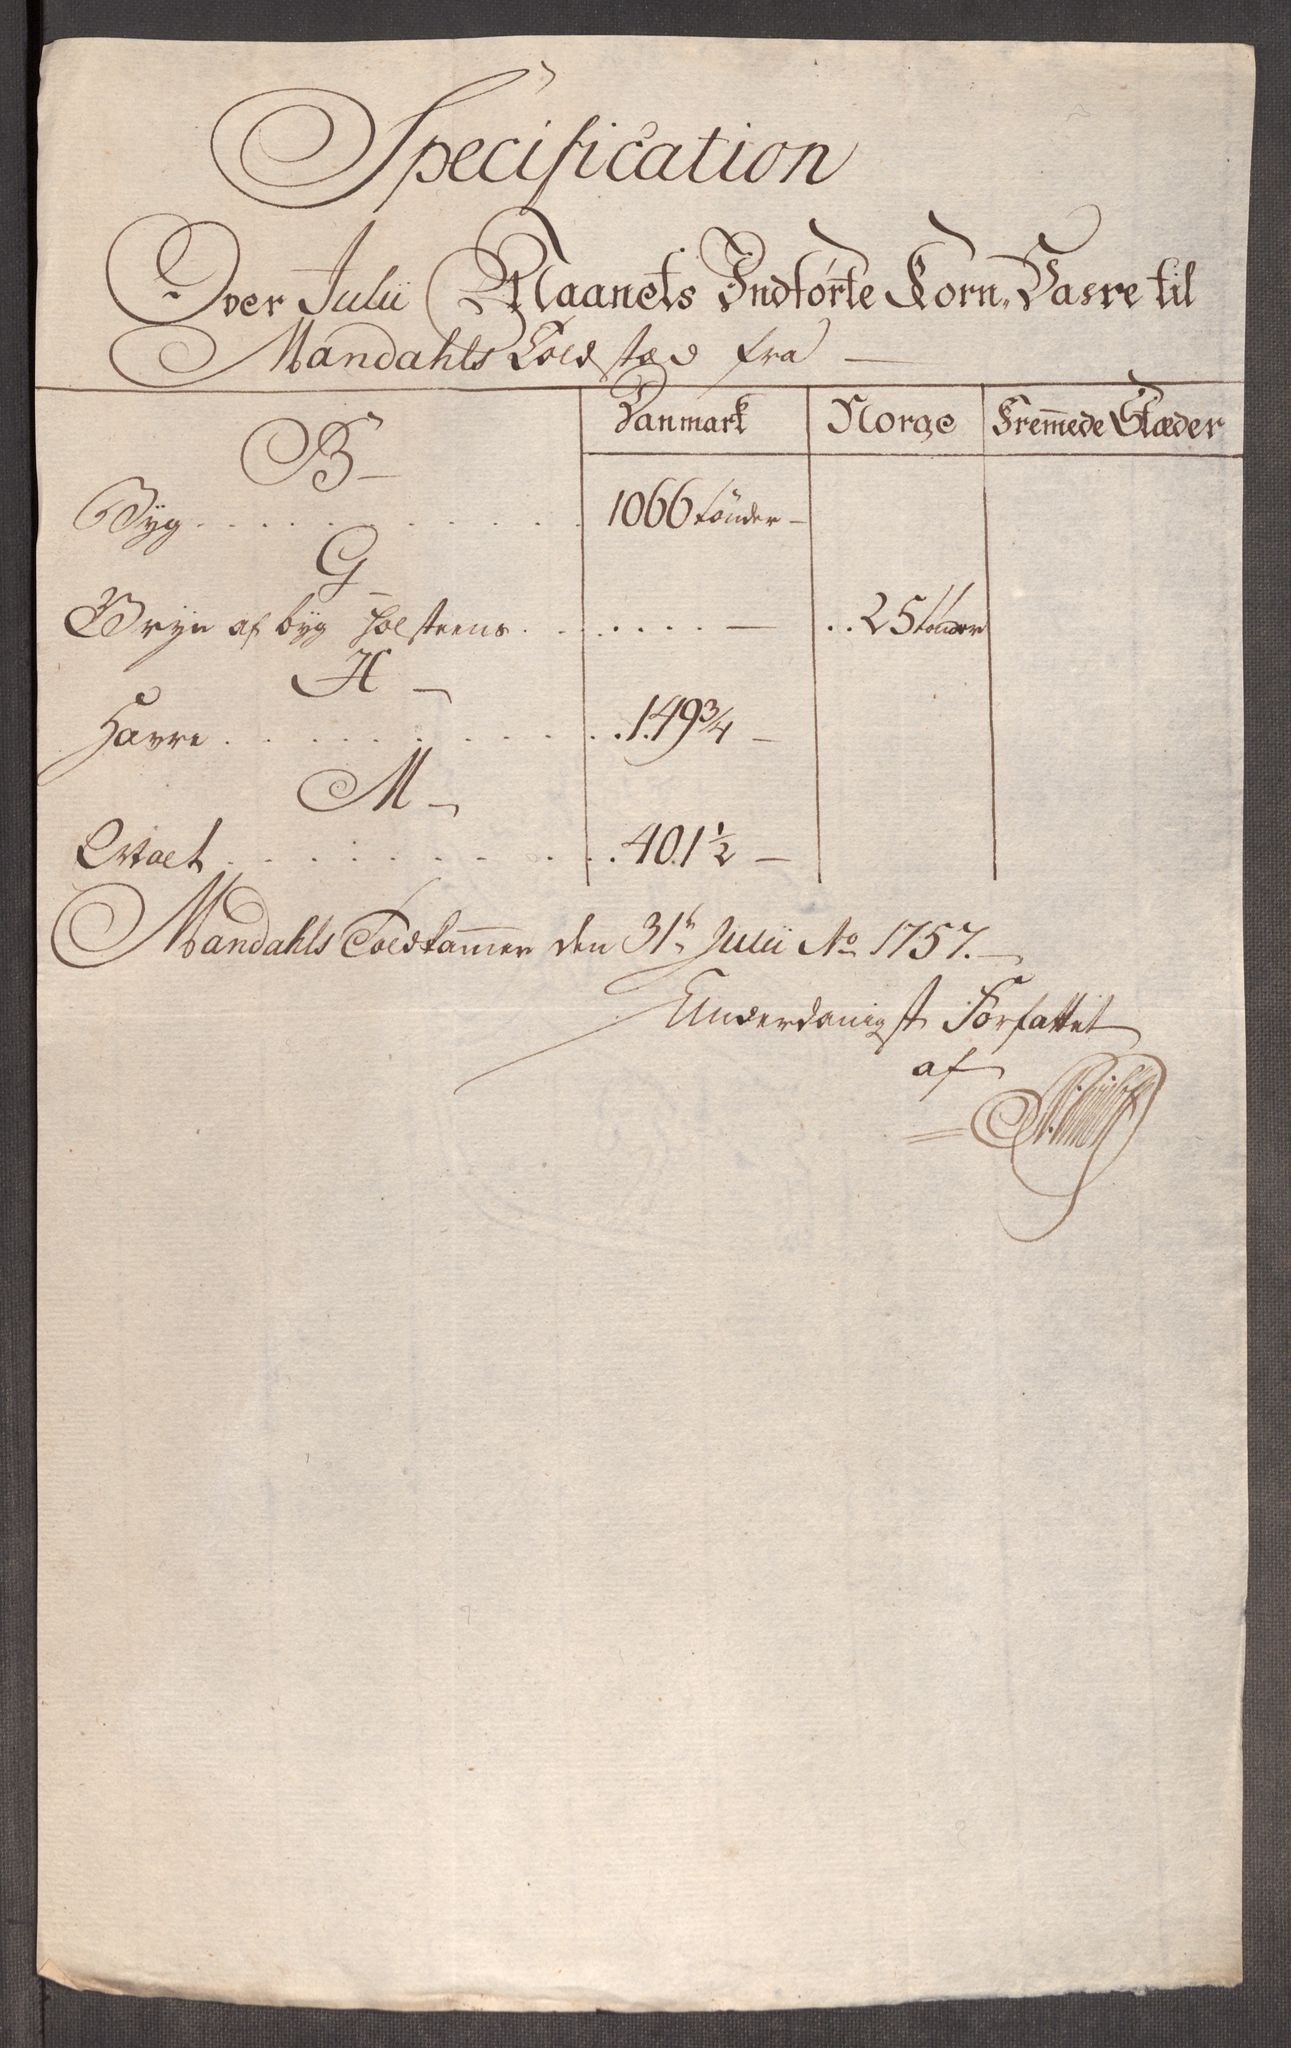 Specification
Over Julii Maanets Indførte Korn-Vasre til
Mandahls Toldstæd fra
Danmark Norge Fremmede Stæder
B
Byg 1066 tönder
G
Gryn af byg holsteens 25 tönder
H
Havre 149 3/4
M
Malt 401 1/2
Mandahls Toldkammer den 31te Julii Ao 1757.
Underdanigst Forfattet
af